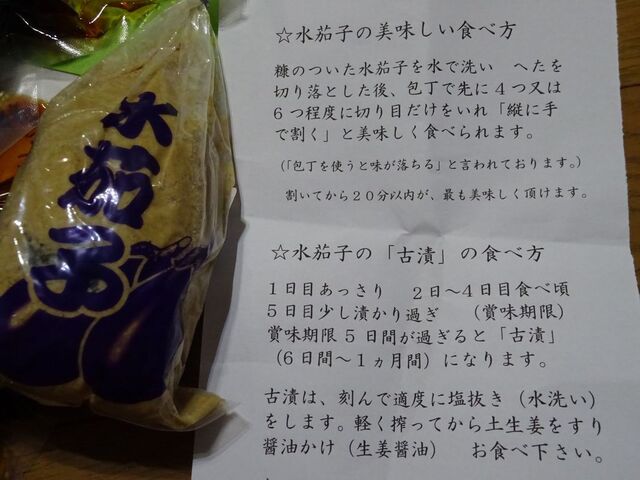 水茄子
☆水茄子の美味しい食べ方
糠のついた水茄子を水で洗い　へたを
切り落とした後、包丁で先に４つ又は
６つ程度に切り目だけをいれ「縦に手
で割く」と美味しく食べられます。
（「包丁を使うと味が落ちる」と言われております。）
割いてから２０分以内が、最も美味しく頂けます。
☆水茄子の「古漬」の食べ方
１日目あっさり　２日～４日目食べ頃
５日目少し漬かり過ぎ　（賞味期限）
賞味期限５日間が過ぎると「古漬」
（６日間～１ヵ月間）になります。
古漬は、刻んで適度に塩抜き（水洗い）
をします。軽く搾ってから土生姜をすり
醤油かけ（生姜醤油）　お食べ下さい。